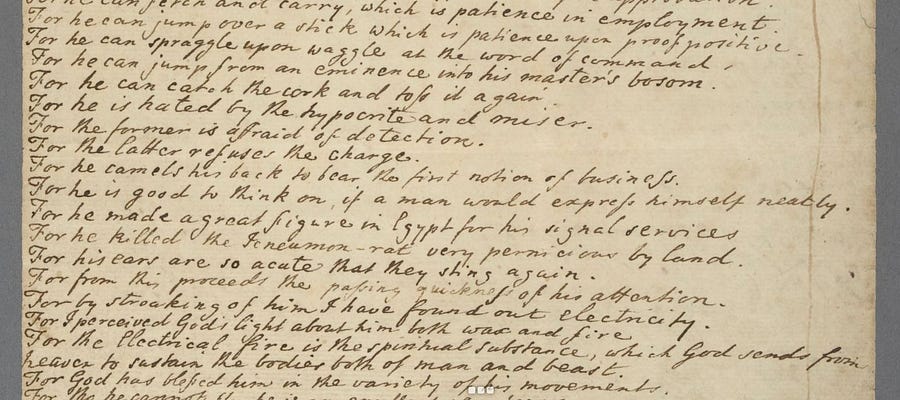 For he can fetch and carry, which is patience in employment.
For he can jump over a stick which is patience upon proof positive.
For he can spraggle upon waggle at the word of command.
For he can jump from an eminence into his master's bosom.
For he can catch the cork and toss it again.
For he is hated by the hypocrite and miser.
For the former is affraid of detection.
For the latter refuses the charge.
For he camels his back to bear the first notion of business.
For he is good to think on, if a man would express himself neatly.
For he made a great figure in Egypt for his signal services
For he killed the Icneumon-rat very pernicious by land.
For his ears are so acute that they sting again.
For from this proceeds the passing quickness of his attention.
For by stroaking of him I have found out electricity.
For I perceived God's light about him both wax and fire
For the Electrical fire is the spiritual substance, which God sends from
heaven to sustain the bodies both of man and beast.
For God has blessed him in the variety of his movements.
For tho he cannot